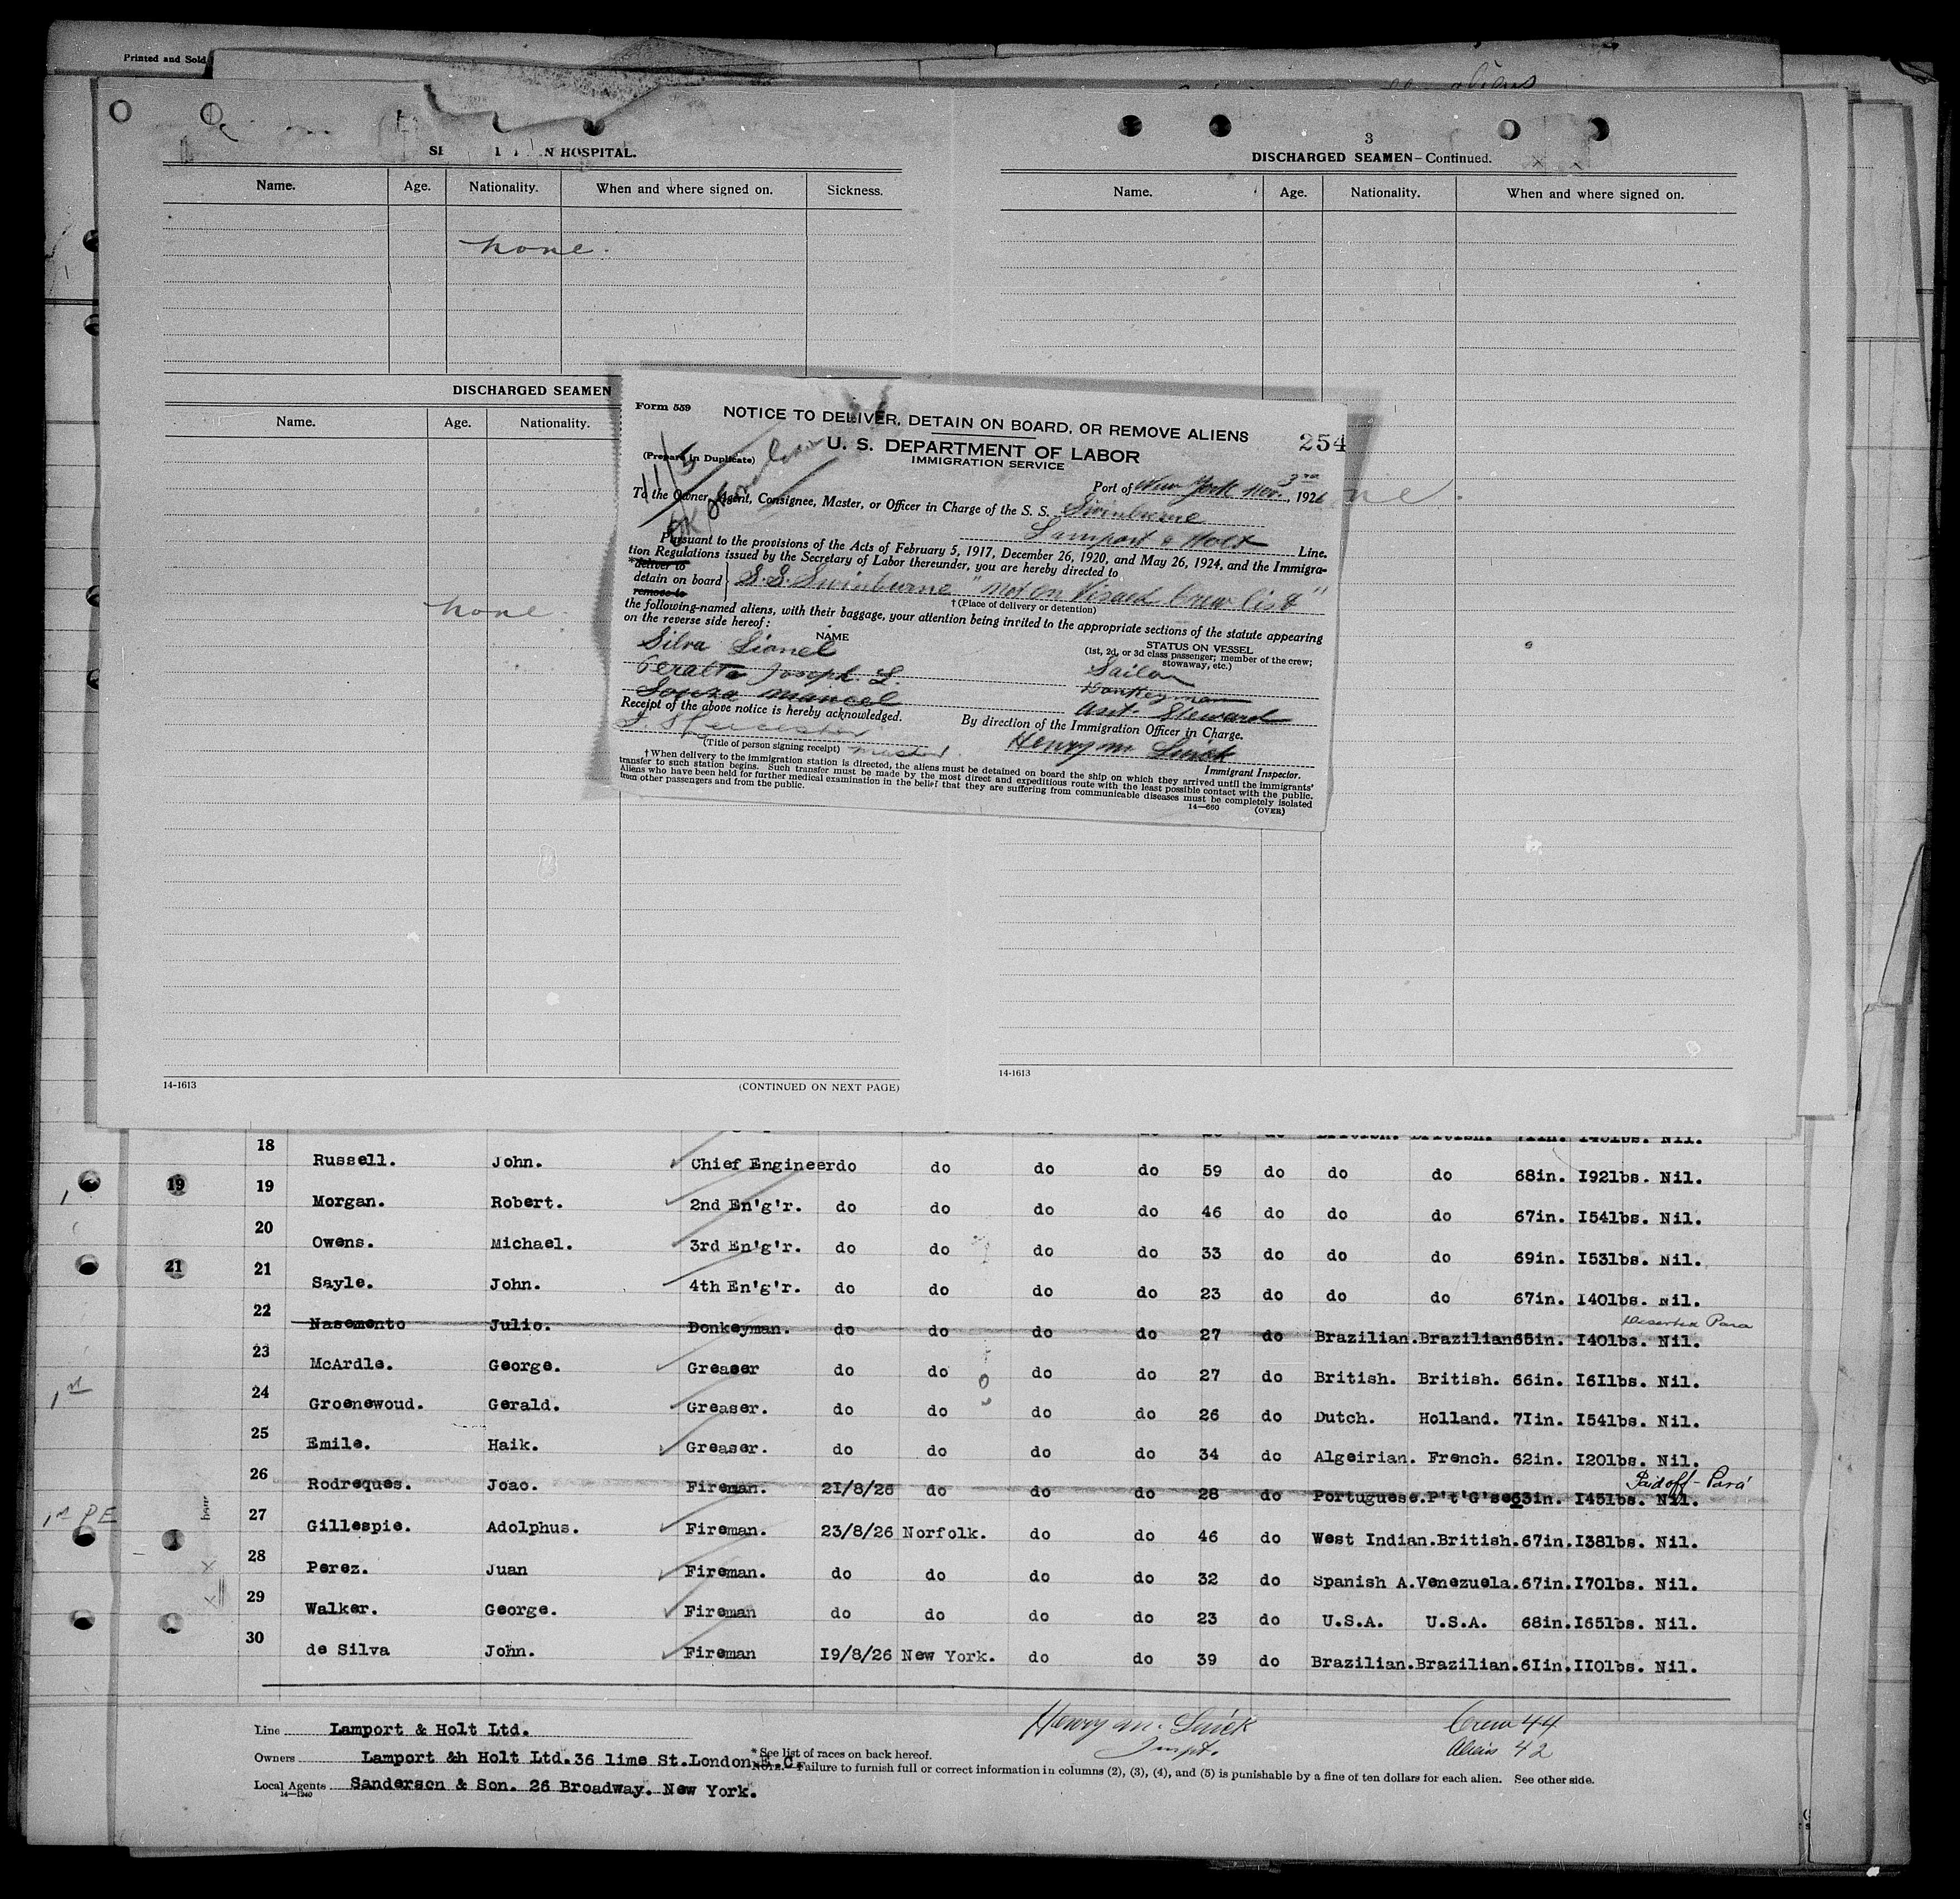 Printed and Sold
aliens
HOSPITAL.
Name. Age. Nationality. When and where signed on. Sickness.
none.
DISCHARGED SEAMEN
Name. Age. Nationality.
none
14-1613 (CONTINUED ON NEXT PAGE)
3
DISCHARGED SEAMEN—Continued.
Name. Age. Nationality. When and where signed on.
ne.
14-1613
Form 559
NOTICE TO DELIVER, DETAIN ON BOARD, OR REMOVE ALIENS
254
U. S. DEPARTMENT OF LABOR
(Prepare in Duplicate)
IMMIGRATION SERVICE
11/5
Port of New York Nov. 3rd, 1926
To the Owner, Agent, Consignee, Master, or Officer in Charge of the S. S. Swinburne
Lamport & Holt Line.
Pursuant to the provisions of the Acts of February 5, 1917, December 26, 1920, and May 26, 1924, and the Immigra-
tion Regulations issued by the Secretary of Labor thereunder, you are hereby directed to
*deliver to
detain on board
remove to
S.S. Swinburne "Not on Visaed Crew list"
†(Place of delivery or detention)
the following-named aliens, with their baggage, your attention being invited to the appropriate sections of the statute appearing
on the reverse side hereof:
NAME STATUS ON VESSEL
(1st, 2d, or 3d class passenger; member of the crew;
stowaway, etc.)
Silva Lionel Sailor
Peralta Joseph. L. Donkeyman
Souza Manoel Asst. Steward
Receipt of the above notice is hereby acknowledged.
By direction of the Immigration Officer in Charge.
(Title of person signing receipt) master.
Henry M Quick
Immigrant Inspector.
†When delivery to the immigration station is directed, the aliens must be detained on board the ship on which they arrived until the immigrants'
transfer to such station begins. Such transfer must be made by the most direct and expeditious route with the least possible contact with the public.
Aliens who have been held for further medical examination in the belief that they are suffering from communicable diseases must be completely isolated
from other passengers and from the public.
14—660 (OVER)
18 Russell. John. Chief Engineer do do do do 59 do do do 68in. I92lbs. Nil.
19 19 Morgan. Robert. 2nd En'g'r. do do do do 46 do do do 67in. I54lbs. Nil.
20 Owens. Michael. 3rd En'g'r. do do do do 33 do do do 69in. I53lbs. Nil.
21 21 Sayle. John. 4th En'g'r. do do do do 23 do do do 67in. I40lbs. Nil.
Deserted Para
22 Nasemento Julio. Donkeyman. do do do do 27 do Brazilian. Brazilian 65in. I40lbs. Nil.
23 McArdle. George. Greaser do do do do 27 do British. British. 66in. I6Ilbs. Nil.
1st
24 Groenewoud. Gerald. Greaser. do do do do 26 do Dutch. Holland. 7Iin. I54lbs. Nil.
25 Emile. Haik. Greaser. do do do do 34 do Algeirian. French. 62in. I20lbs. Nil.
Paid off-Para
26 Rodreques. Joao. Fireman. 2I/8/26 do do do 28 do Portuguese. P't'G'se 63in. I45lbs. Nil.
1st PE
27 Gillespie. Adolphus. Fireman. 23/8/26 Norfolk. do do 46 do West Indian. British. 67in. I38lbs. Nil.
28 Perez. Juan Fireman. do do do do 32 do Spanish A. Venezuela. 67in. I70lbs. Nil.
29 Walker. George. Fireman do do do do 23 do U.S.A. U.S.A. 68in. I65lbs. Nil.
30 de Silva John. Fireman I9/8/26 New York. do do 39 do Brazilian. Brazilian. 6Iin. II0lbs. Nil.
Line Lamport & Holt Ltd.
Owners Lamport &h Holt Ltd. 36 lime St. London. E.C.
Local Agents Sanderson & Son. 26 Broadway. New York.
14—1240
Henry M. Quick
Inspt.
Crew 44
Aliens 42
* See list of races on back hereof.
NOTE.—Failure to furnish full or correct information in columns (2), (3), (4), and (5) is punishable by a fine of ten dollars for each alien. See other side.